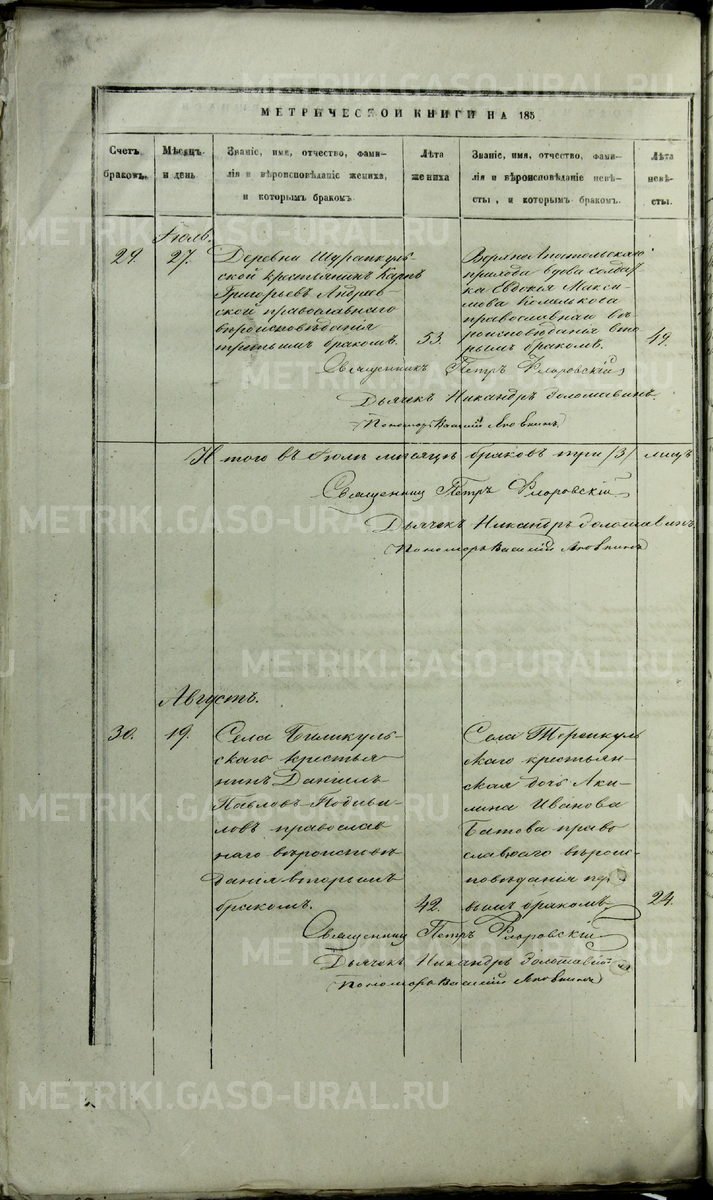 METRIKI.GASO-URAL.RU
МЕТРИЧЕСКОЙ КНИГИ НА 185
Счетъ браковъ.
Мѣсяцъ и день
Званіе, имя, отчество, фами-
лія и вѣроисповѣданіе жениха,
и которымъ бракомъ
Лѣта жениха
Званіе, имя, отчество, фами-
лія и вѣроисповѣданіе невѣ-
сты, и которымъ бракомъ.
Лѣта невѣ-
сты.
Іюль.
29.
27.
Деревни
ской крестьянинъ Карпъ
Григорьевъ Андреев
ской православнаго
вѣроисповѣданія
третьимъ бракомъ.
53.
прихода вдова солдат
ка Евдокія Макси
мова
православнаго вѣ
роисповѣданія вто
рымъ бракомъ.
49.
Священникъ Петръ Флоровскій
Дьячекъ Никандръ
Пономарь Василій Яковкинъ
Итого въ Іюлѣ мѣсяцѣ браковъ три /3/
Священникъ Петръ Флоровскій
Дьячекъ Никандръ
Пономарь Василій Яковкинъ
Августъ.
30.
19.
Села
скаго крестья
нинъ Даніилъ
Павловъ
ловъ православ
наго вѣроисповѣ
данія вторымъ
бракомъ.
42.
Села
скаго крестьян
ская дочь Аки
лина Иванова
Батова право
славнаго вѣроис
повѣданія пер
вымъ бракомъ
24.
Священникъ Петръ Флоровскій
Дьячекъ Никандръ
Пономарь Василій Яковкинъ